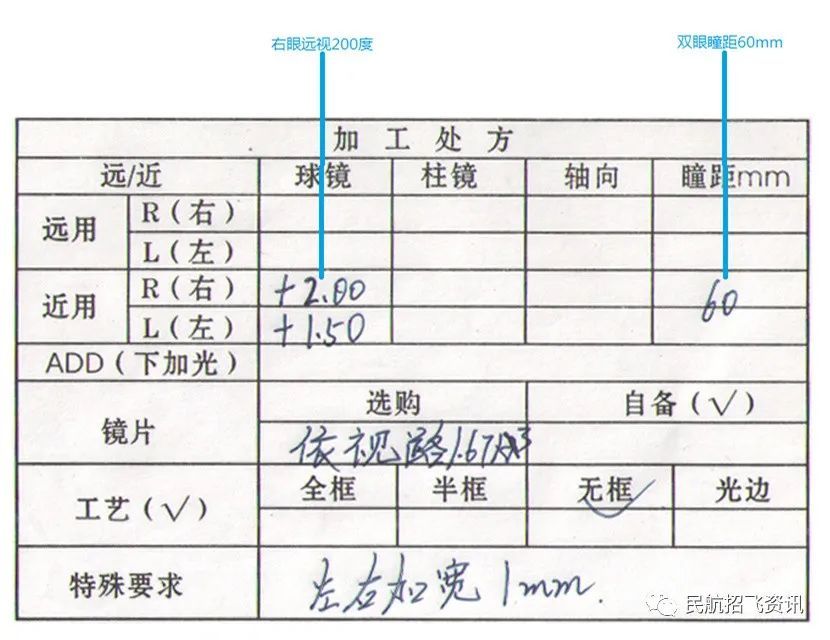 右眼远视200度 双眼瞳距60mm
加工处方
远/近 球镜 柱镜 轴向 瞳距mm
远用 R(右)
L(左)
近用 R(右) +2.00 60
L(左) +1.50
ADD(下加光)
镜片 选购 自备(√)
依视路1.67
工艺(√) 全框 半框 无框 光边
特殊要求 左右加宽1mm.
民航招飞资讯